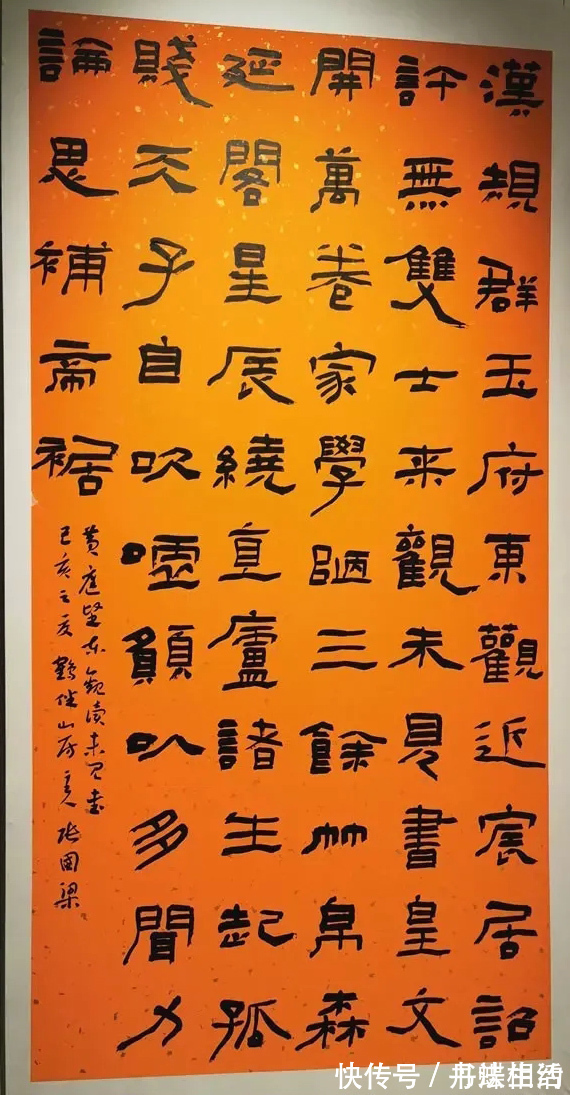 漢規群玉府東觀近宸居詔
許無雙士来觀未見書皇文
開萬卷家學陋三餘竹帛森
延閣星辰繞直廬諸生起孤
賤天子自吹嘘願以多聞力
論思補帝裾
黄庭堅東觀讀未見書
己亥之夏 山房主人 張國梁
快传号 /